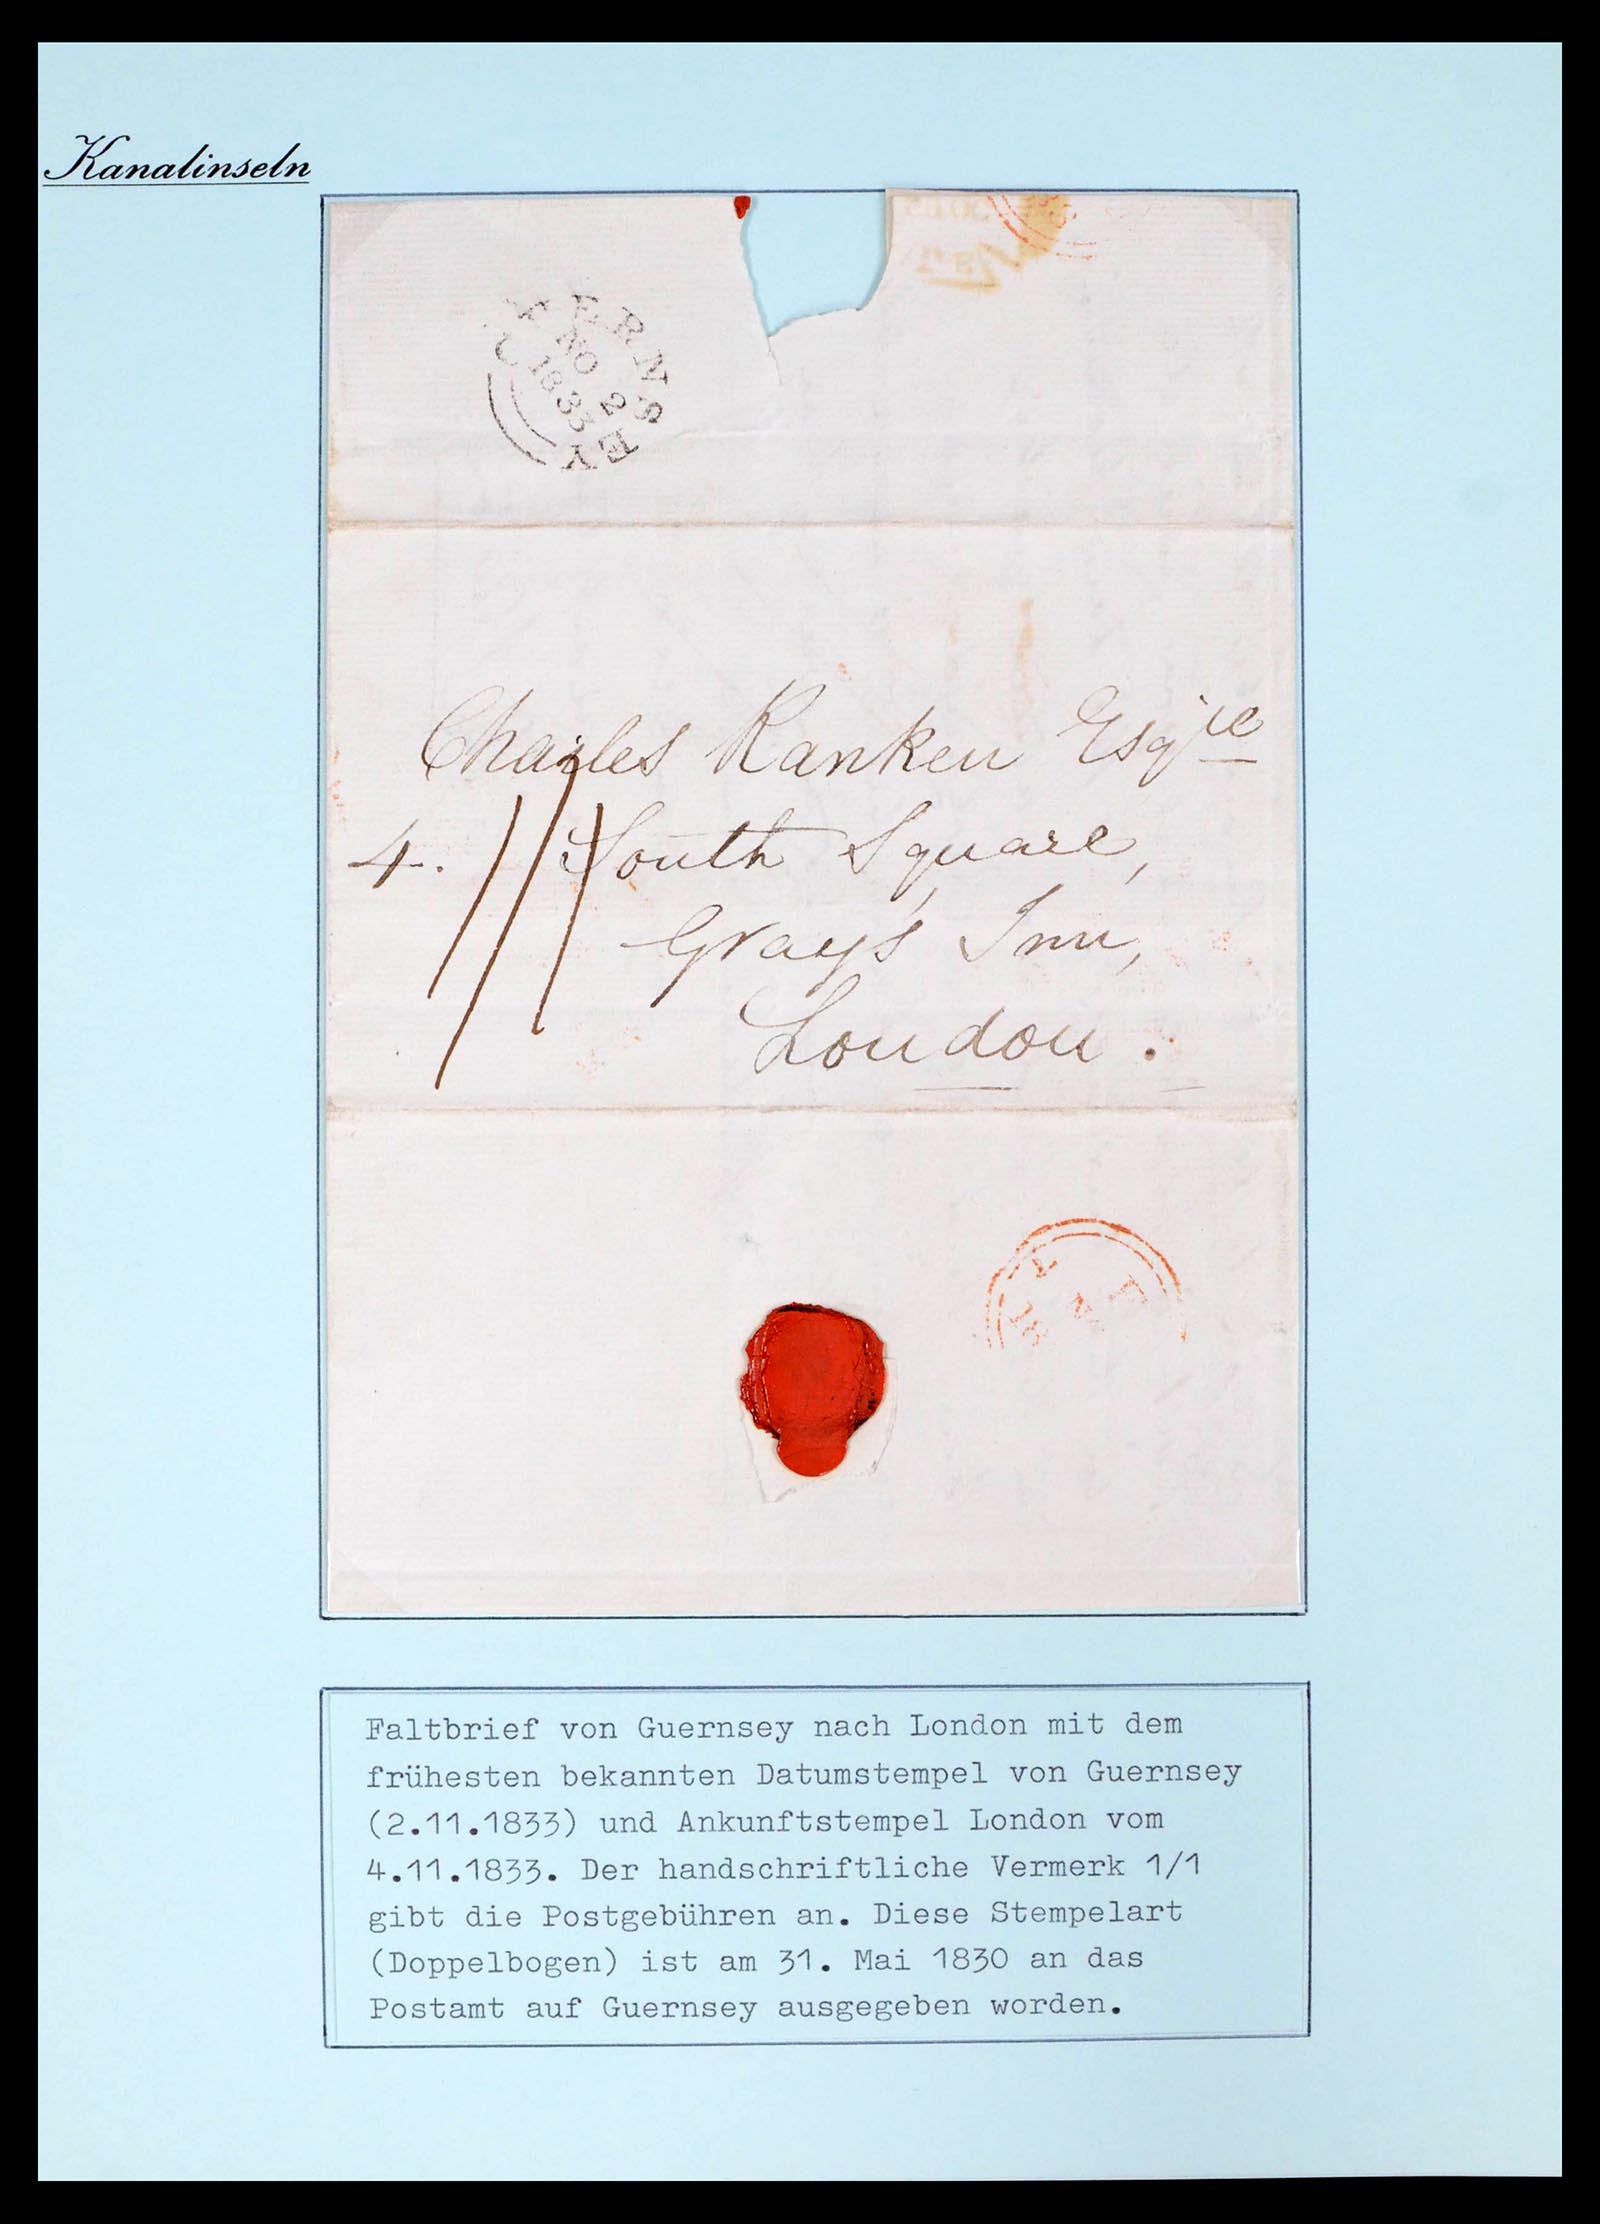 Kanalinseln
GUERNSEY
NO 2
1833
Charles Ranken Esqre
4. 1/1 South Square,
Gray's Inn,
London.
Faltbrief von Guernsey nach London mit dem
frühesten bekannten Datumstempel von Guernsey
(2.11.1833) und Ankunftstempel London vom
4.11.1833. Der handschriftliche Vermerk 1/1
gibt die Postgebühren an. Diese Stempelart
(Doppelbogen) ist am 31. Mai 1830 an das
Postamt auf Guernsey ausgegeben worden.